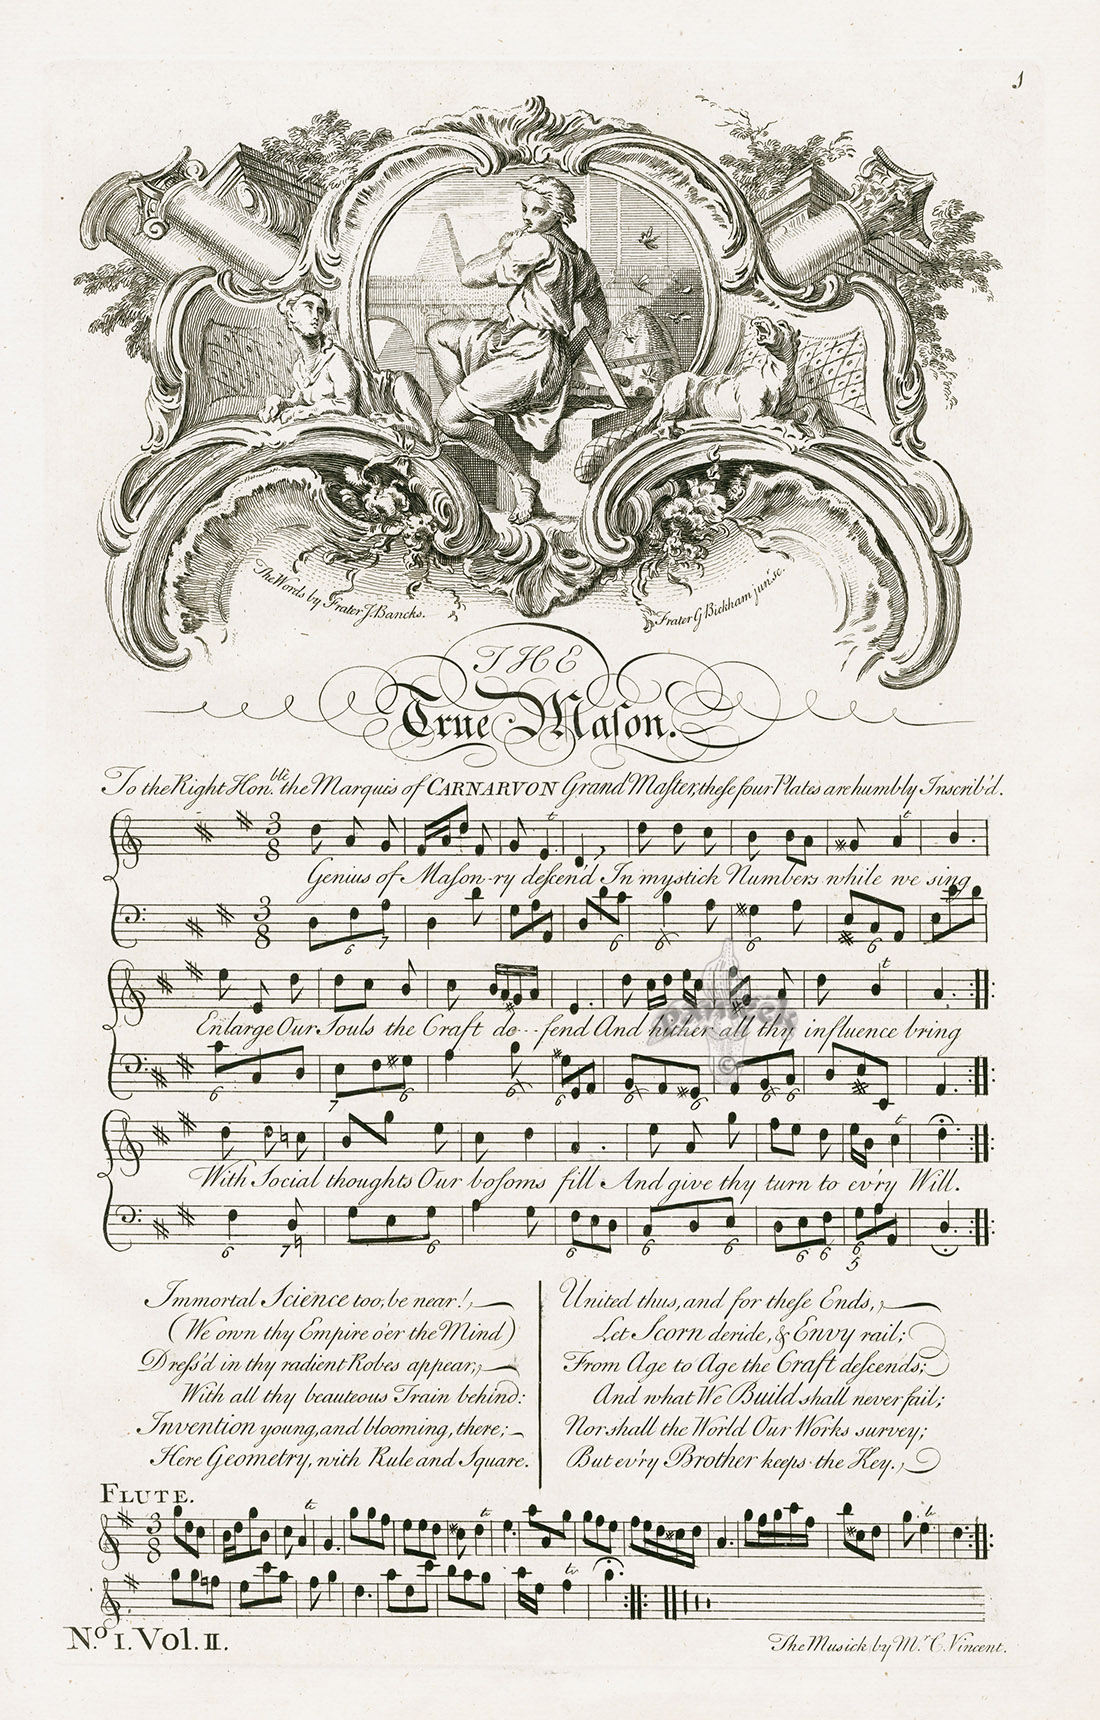 1
The Words by Frater J. Bancks.
Frater G Bickham junr. sc.
THE
True Maſon.
To the Right Hon.ble the Marquis of CARNARVON Grand Maſter, theſe four Plates are humbly Inscrib'd.
3 8
t
Genius of Maſon-ry deſcen'd In myſtick Numbers while we sing
3 8
6 7 6 6 6 6
t
Enlarge Our Souls the Craft de--fend And hither all thy influence bring
6 7 6 6 6 6 6 6 6 6
t
With Social thoughts Our boſoms fill And give thy turn to ev'ry Will.
6 7 6 6 6 6 6 6 6 5
Immortal Science too, be near!
(We own thy Empire o'er the Mind)
Dreſs'd in thy radient Robes appear,
With all thy beauteous Train behind:
Invention young, and blooming, there;
Here Geometry, with Rule and Square.
United thus, and for theſe Ends,
Let Scorn deride, & Envy rail;
From Age to Age the Craft deſcends;
And what We Build shall never fail;
Nor shall the World Our Works survey;
But ev'ry Brother keeps the Key.
FLUTE.
3 8
tr t t
tr
N.o I. Vol. II.
The Musick by Mr. C. Vincent.